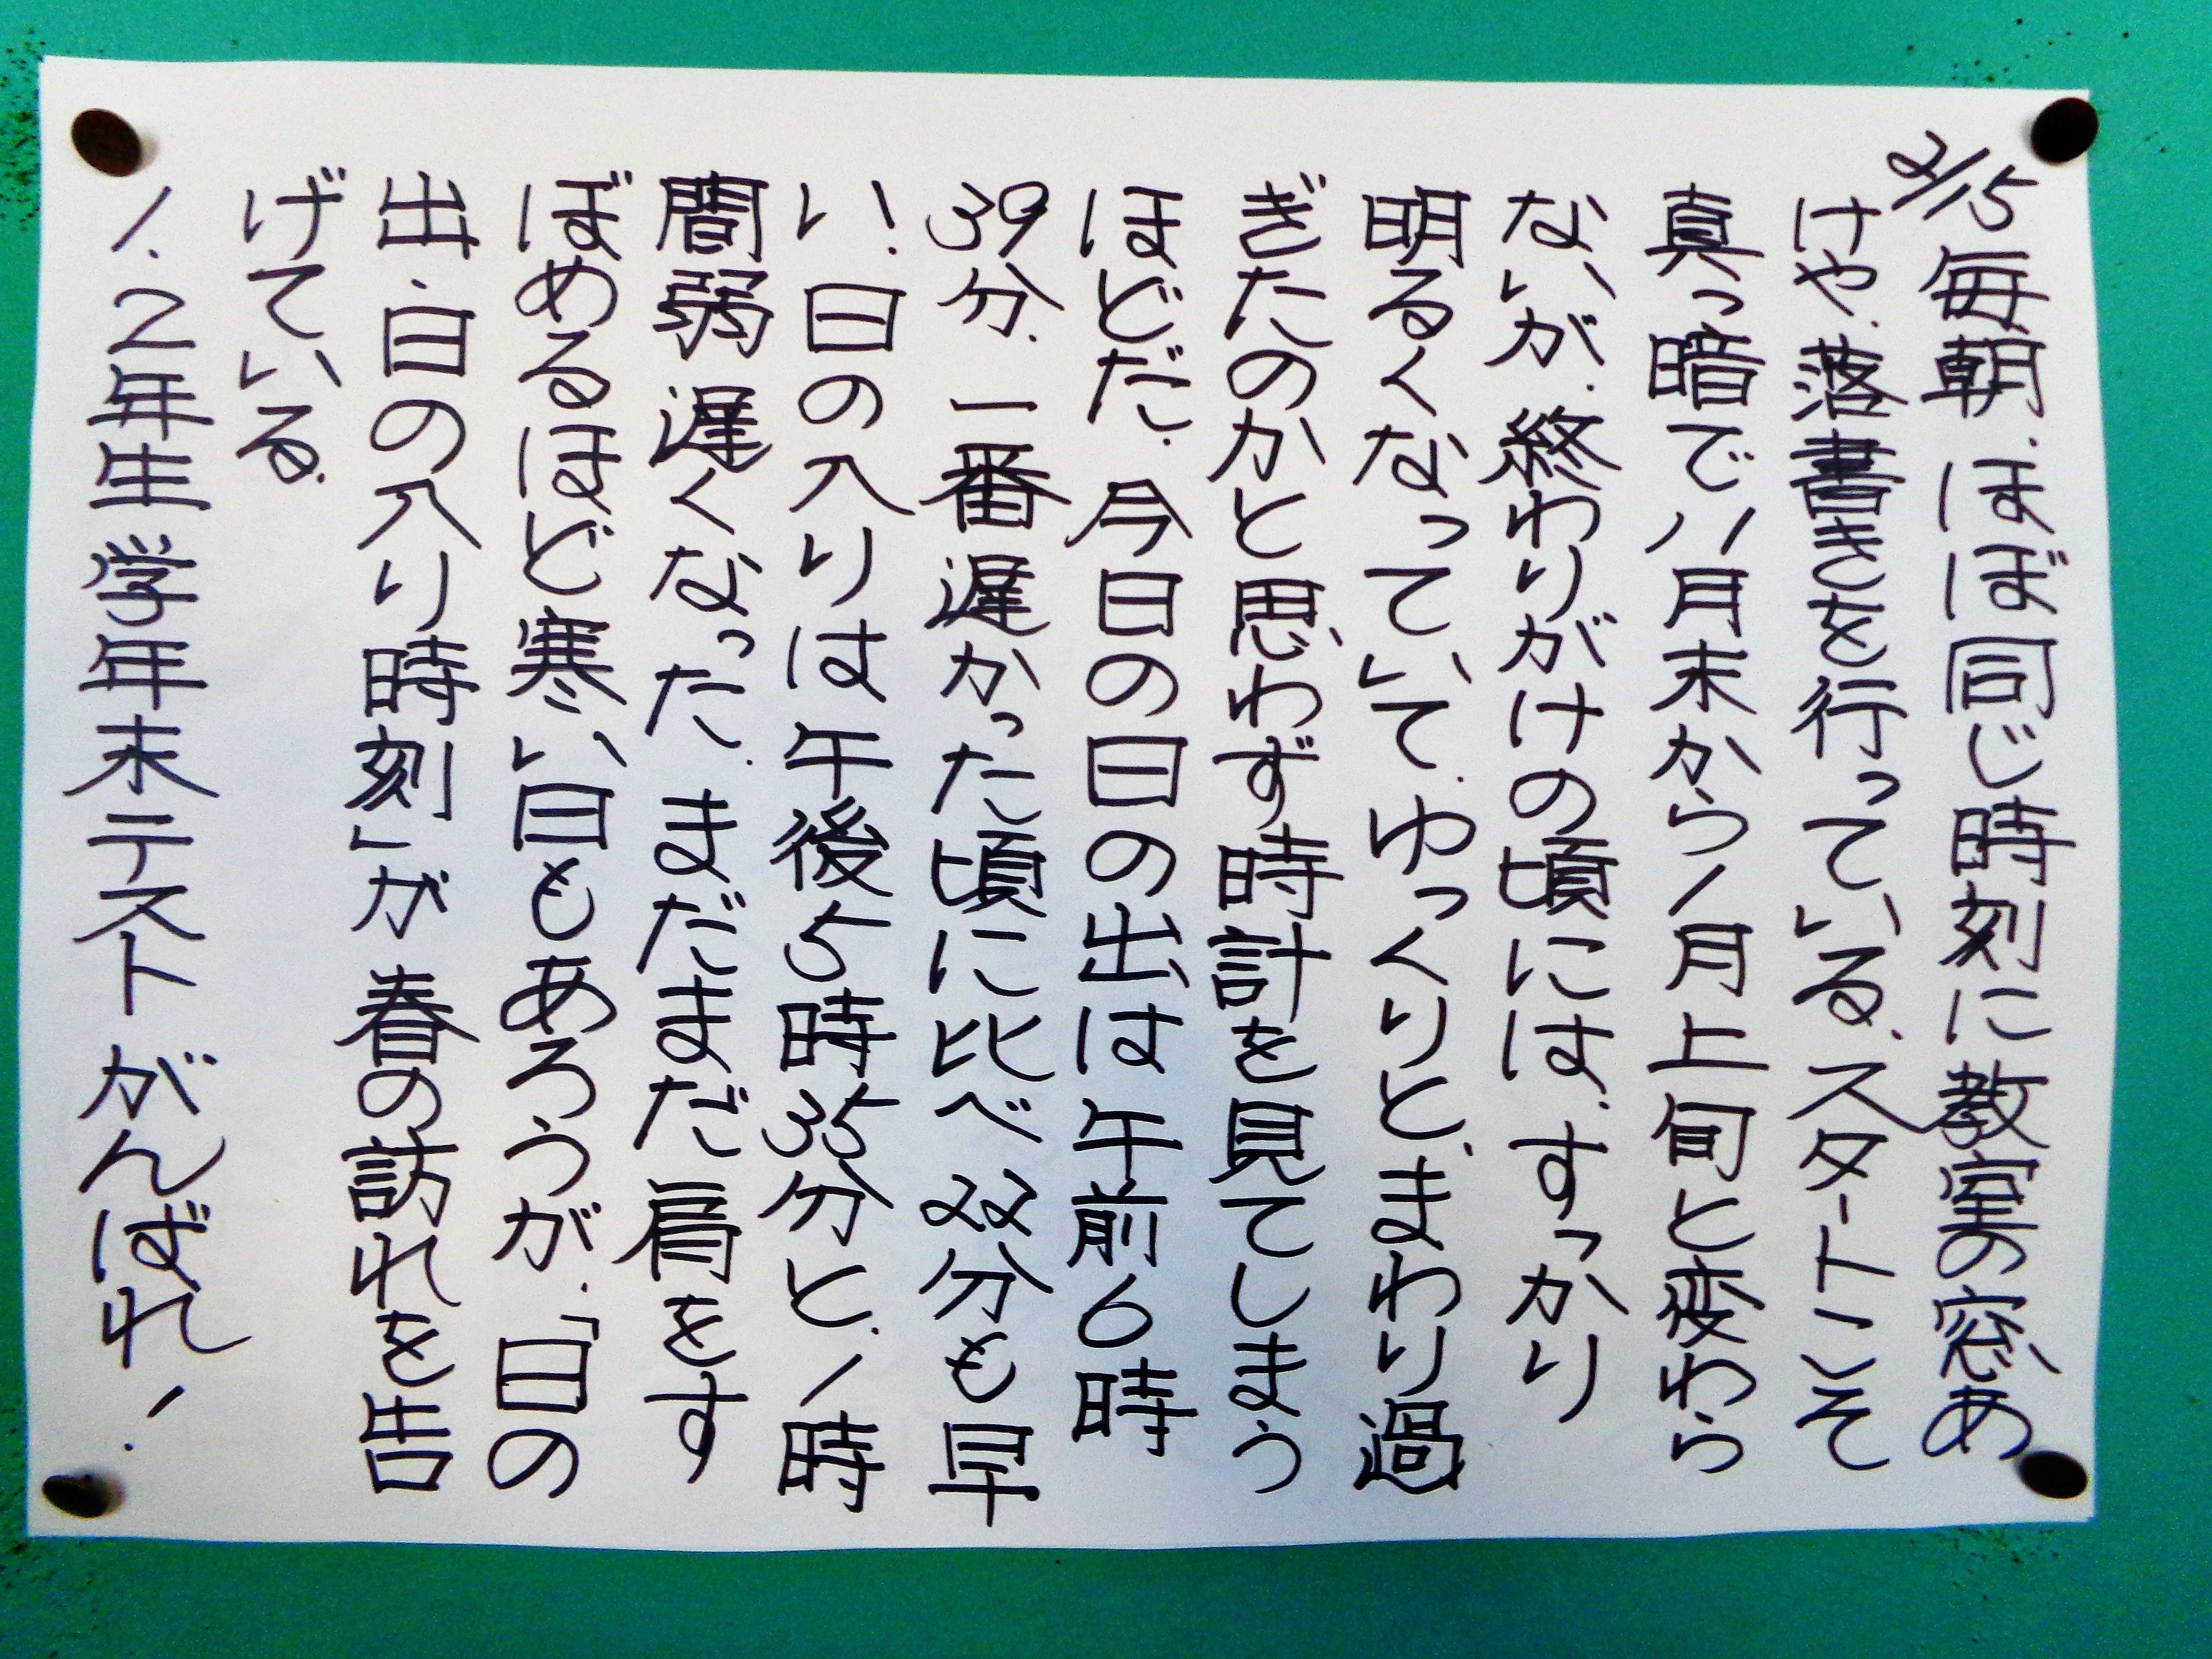 2/15
毎朝、ほぼ同じ時刻に教室の窓あ
けや、落書きを行っている。スタートこそ
真っ暗で11月末から1月上旬と変わら
ないが、終わりがけの頃には、すっかり
明るくなっていて、ゆっくりと、まわり過
ぎたのかと思わず時計を見てしまう
ほどだ。今日の日の出は午前6時
39分、一番遅かった頃に比べ22分も早
い!日の入りは午後5時35分と、1時
間弱遅くなった。まだまだ肩をす
ぼめるほど寒い日もあろうが、「日の
出・日の入り時刻」が春の訪れを告
げている。
1、2年生学年末テストがんばれ!